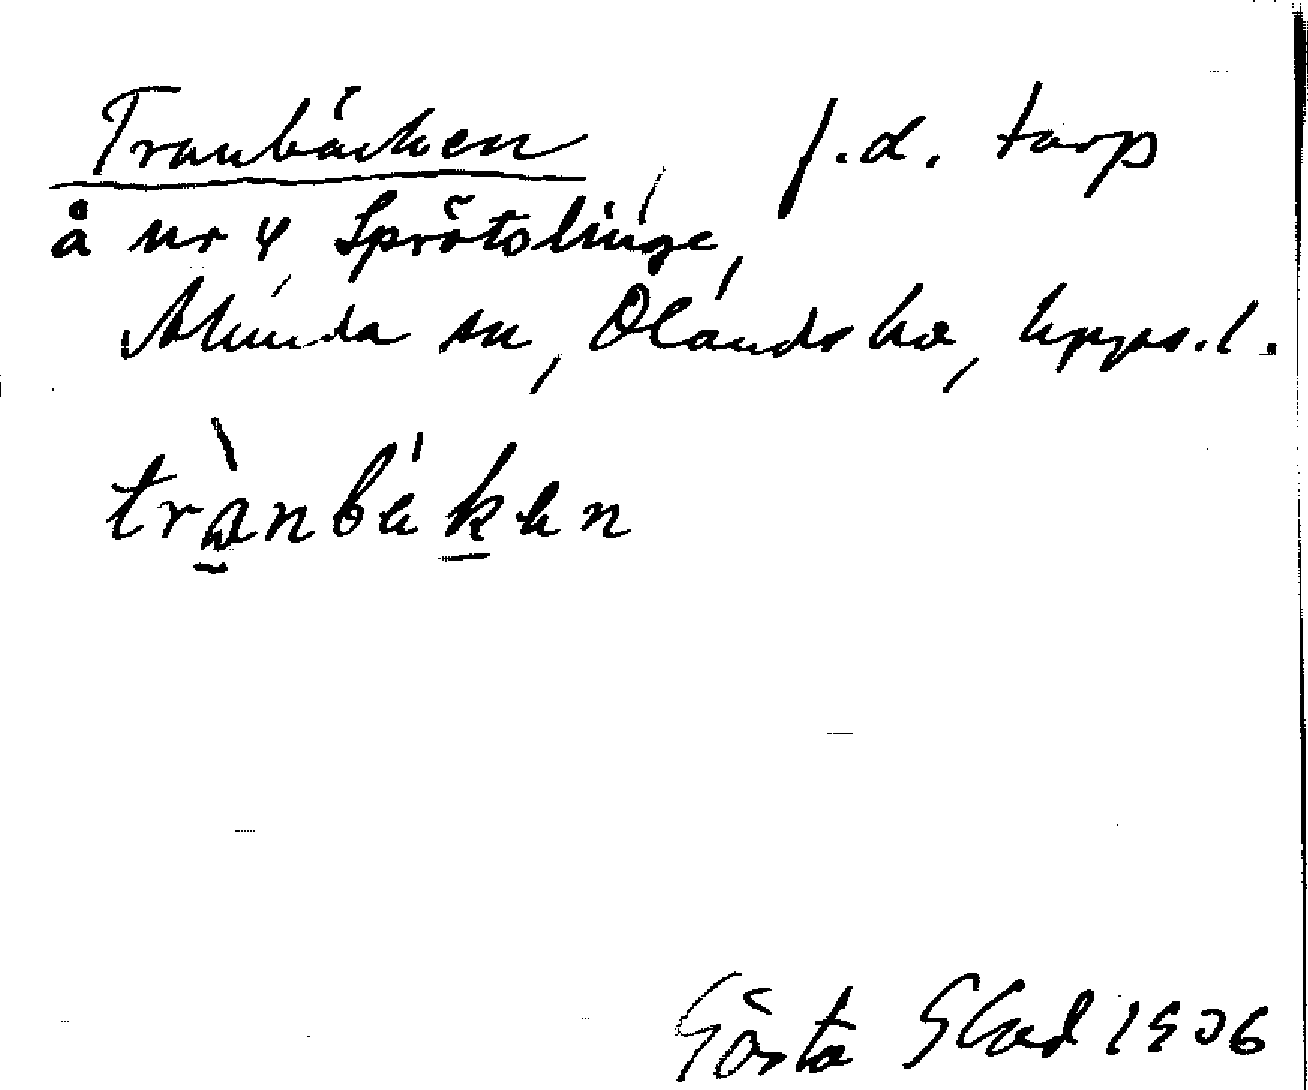 Tranbäcken, f.d. torp
å nr 4 Sprötslinge,
Alunda sn, Olands hd, Upps. l.
trànbäkän
Gösta Blad 1936